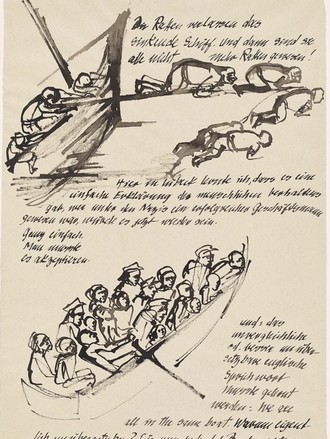 Die Ratten verlassen das
sinkende Schiff. Und dann sind sie
alle nicht mehr Ratten gewesen!
Hier in Lübeck lernte ich, dass es eine
einfache Erklärung des menschlichen Verhaltens
gab, wer unter den Nazis ein erfolgreicher Geschäftsmann
gewesen war, würde es jetzt wieder sein.
Ganz einfach.
Man musste
es akzeptieren.
und: das
unvergleichliche
od. besser un über-
setzbare englische
Sprichwort
musste gelernt
werden: We are
all in the same boat. Warum eigent
lich unübersetzbar?